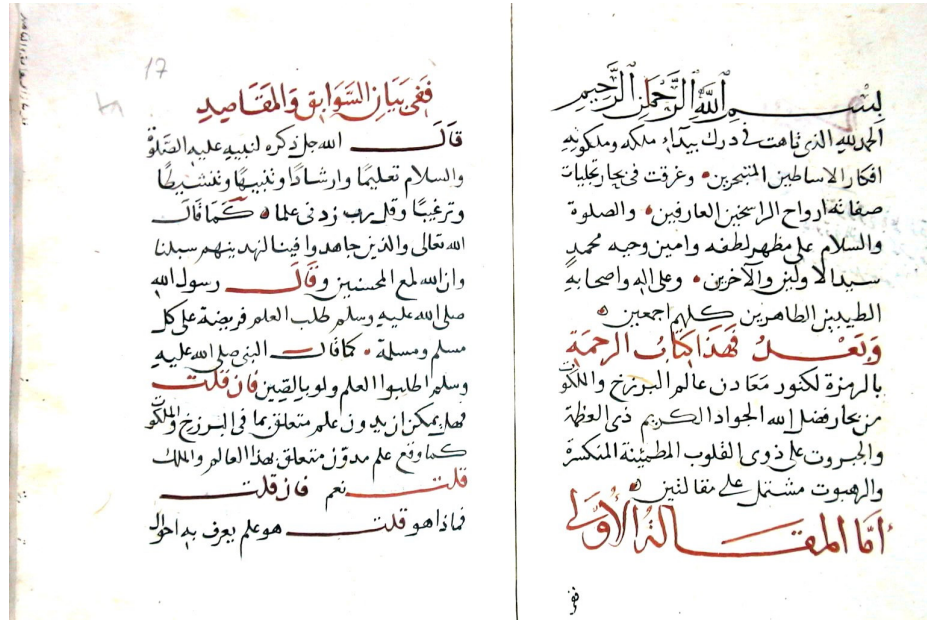 بِسْمِ اللهِ الرَّحْمٰنِ الرَّحِيمِ
الحمد لله الذى تاهت فى درك بيداء ملكه وملكوته
افكار الاساطين المتبحرين وغرقت فى بحار تجليات
صفاته ارواح الراسخين العارفين والصلوة
والسلام على مظهر لطفه وامين وحيه محمد
سيد الاولين والآخرين وعلى اله واصحابه
الطيبين الطاهرين كلهم اجمعين
وَبَعْدُ فَهَذَا كِتَابُ الرحمَةِ
بالرمزة لكنوز مَعَادن عالم البرزخ والملكوت
من بحار فضل الله الجواد الكريم ذى العظمة
والجبروت على ذوى القلوب المطمئنة المنكسرة
والرهبوت مشتمل على مقالتين
أمّا المقَالَةُ الأُوْلَى
ففى
17
فَفِى بَيَانِ السَّوَابِق وَالمقَاصِدِ
قَالَ الله جل ذكره لنبيه عليه الصَّلوٰة
والسلام تعليمًا وارشادًا وتنبيهًا وتنشيطًا
وترغيبًا وقل رب زدنى علما كَمَا قَالَ
الله تعالى والذين جاهدوا فينا لنهدينهم سبلنا
وان الله لمع المحسنين وقَالَ رسول الله
صلى الله عليه وسلم طلب العلم فريضة على كل
مسلم ومسلمة كما قال النبى صلى الله عليه
وسلم اطلبوا العلم ولو بالصين فان قلت
فهل يمكن ان يدون علم متعلق بما فى البرزخ والملكوت
كما وقع علم مدوّن متعلق بهذا العالم والملك
قلت نعم فان قلت
فماذا هو قلت هو علم يعرف به احوال